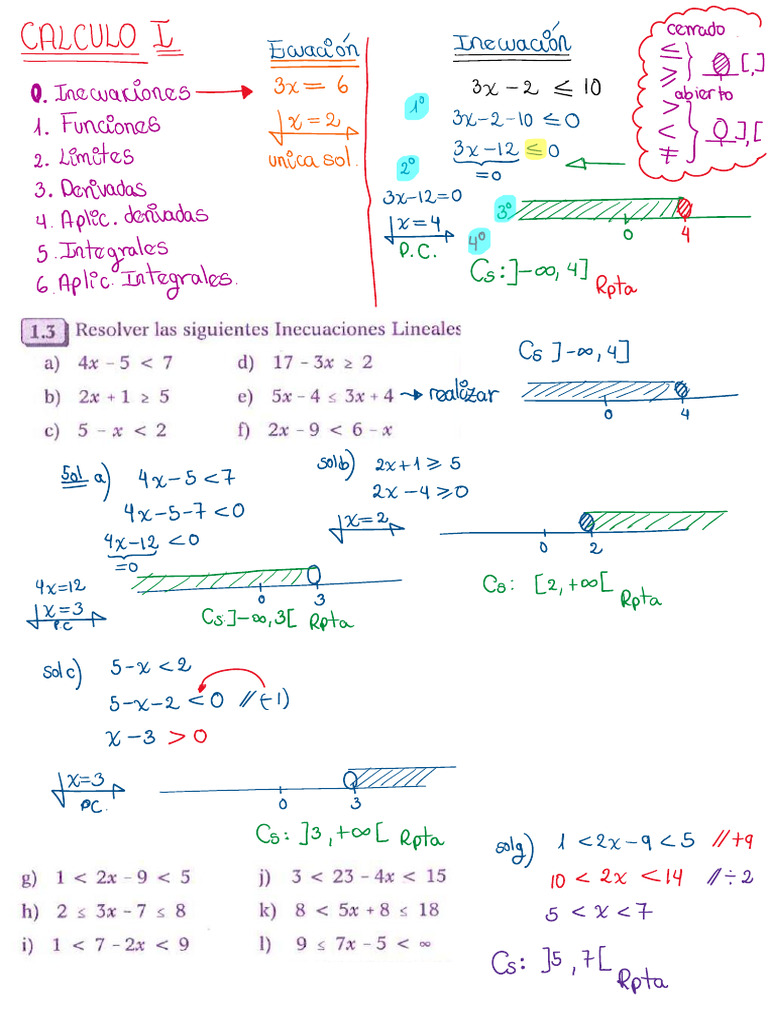 CALCULO I
0. Inecuaciones
1. Funciones
2. Limites
3. Derivadas
4. Aplic. derivadas
5. Integrales
6. Aplic. Integrales.
Ecuación
3x = 6
x = 2
unica sol.
Inecuación
3x - 2 ≤ 10
1º
3x - 2 - 10 ≤ 0
3x - 12 ≤ 0
= 0
2º
3x - 12 = 0
x = 4
P.C.
3º
0 4
4º
Cs: ]-∞, 4]
Rpta
cerrado
≤
≥
[,]
abierto
>
<
≠
],[
1.3 Resolver las siguientes Inecuaciones Lineales
a) 4x - 5 < 7
b) 2x + 1 ≥ 5
c) 5 - x < 2
d) 17 - 3x ≥ 2
e) 5x - 4 ≤ 3x + 4 → realizar
f) 2x - 9 < 6 - x
Cs ]-∞, 4]
0 4
Sol a) 4x - 5 < 7
4x - 5 - 7 < 0
4x - 12 < 0
= 0
4x = 12
x = 3
P.C
0 3
Cs. ]-∞, 3[ Rpta
sol b) 2x + 1 ≥ 5
2x - 4 ≥ 0
x = 2
0 2
Cs: [2, +∞[ Rpta
sol c) 5 - x < 2
5 - x - 2 < 0 // (-1)
x - 3 > 0
x = 3
PC.
0 3
Cs: ]3, +∞[ Rpta
g) 1 < 2x - 9 < 5
h) 2 ≤ 3x - 7 ≤ 8
i) 1 < 7 - 2x < 9
j) 3 < 23 - 4x < 15
k) 8 < 5x + 8 ≤ 18
l) 9 ≤ 7x - 5 < ∞
sol g) 1 < 2x - 9 < 5 // +9
10 < 2x < 14 // ÷ 2
5 < x < 7
Cs: ]5, 7[ Rpta